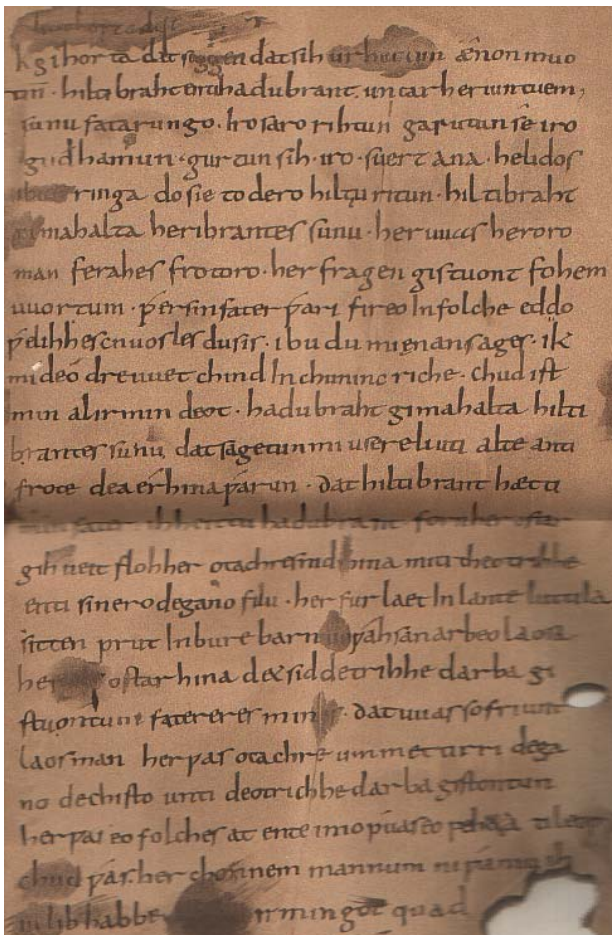 Ik gihorta dat seggen dat sih urhettun ænon muo
tin · hiltibraht enti hadubrant · untar heriun tuem,
sunu fatarungo · Iro saro rihtun garutun sê iro
gudhamun · gurtun sih · iro · suert ana · helidos
ubar ringa do sie to dero hiltu ritun · hiltibraht
gimahalta heribrantes sunu · her uuas heroro
man ferahes frotoro · her fragen gistuont fohem
uuortum · ƿer sin fater ƿari fireo In folche eddo
ƿelihhes cnuosles du sis · ibu du mi ęnan sages · ik
mi deo dre uuet chind In chuninc riche · chud ist
min al irmin deot · hadubraht gimahalta hilti
brantes sunu dat sagetun mi usere liuti alte anti
frote dea érhina ƿarun · dat hiltibrant hætti
min fater ih heittu hadubrant forn her ostar
gihueit floh her otachres nid hina miti theotrihhe
enti sinero degano filu · her fur laet In lante luttila
sitten prut In bure barn unƿahsan arbeo laosa
her ostar hina det sid detrihhe darba gi
stuontum fatereres mines · dat uuas so friunt
laos man her ƿas otachre ummet tirri dega
no dechisto unti deotrichhe darba gistontun
her ƿas eo folches at ente imo ƿuas eo ti leop
chud ƿas her chonnem mannum ni ƿaniu ih
iu lib habbe irmingot quad